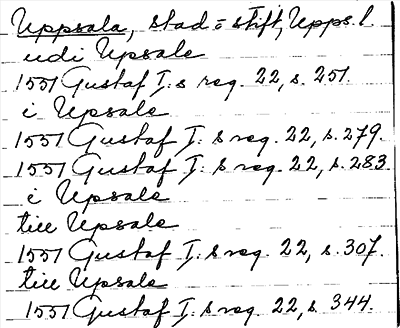 Uppsala, stad o stift, Upps. l.
udi Upsale
1551 Gustaf I:s reg. 22, s. 251.
i Upsale
1551 Gustaf I:s reg. 22, s. 279.
1551 Gustaf I:s reg. 22, s. 283.
i Upsale
till Upsale
1551 Gustaf I:s reg. 22, s. 307.
till Upsale
1551 Gustaf I:s reg. 22, s. 344.